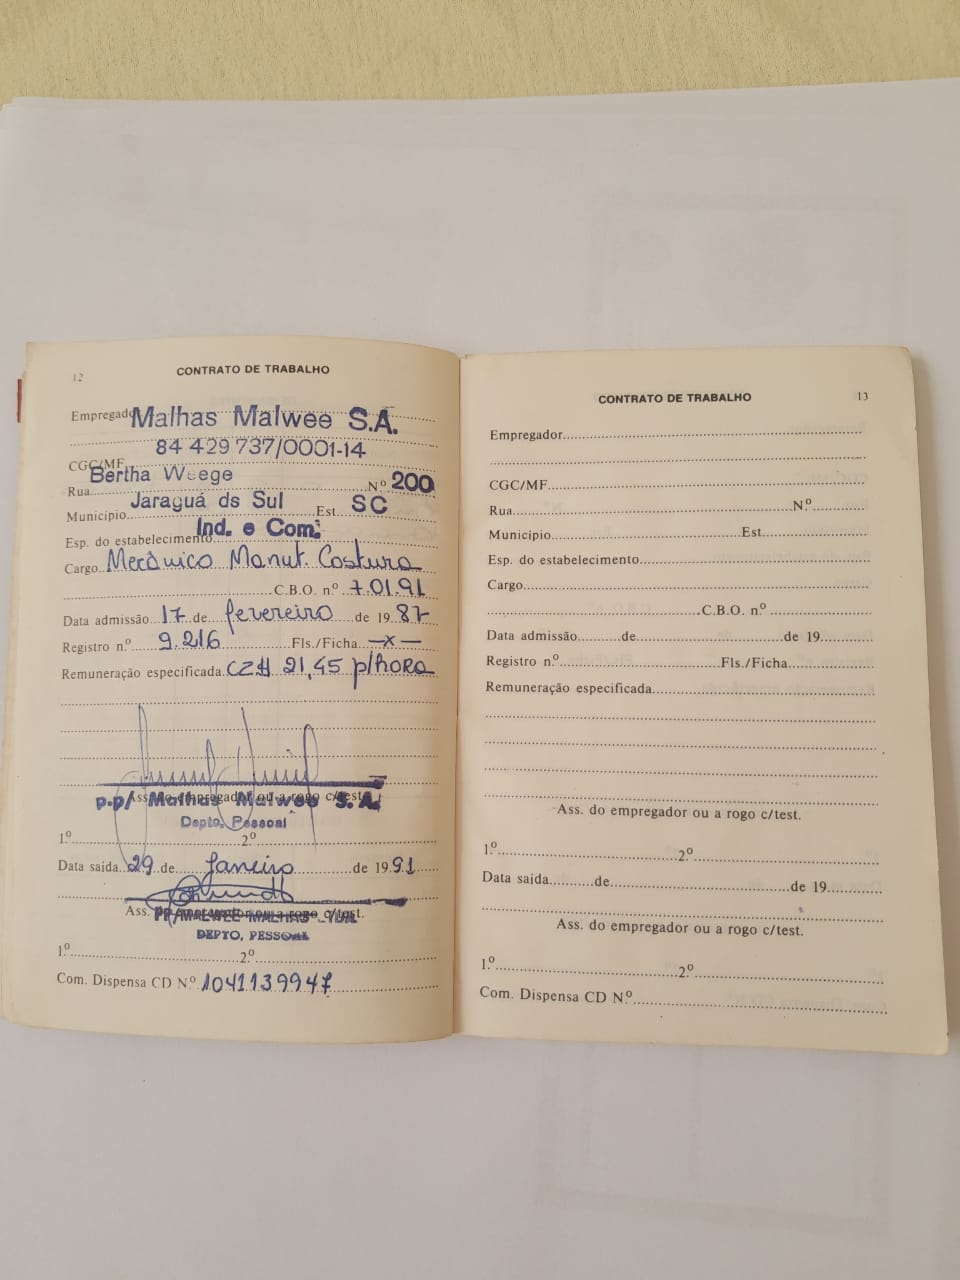 12
CONTRATO DE TRABALHO
Empregado Malhas Malwee S.A.
84 429 737/0001-14
CGC/MF
Bertha Weege
Rua Nº 200
Jaraguá do Sul SC
Município Est.
Ind. e Com.
Esp. do estabelecimento
Cargo Mecânico Manut. Costura
C.B.O. n.º 7.01.91
Data admissão 17 de fevereiro de 19 87
Registro n.º 9.216 Fls./Ficha —x—
Remuneração especificada CZ$ 21,45 p/hora
Ass. do empregador ou a rogo c/test.
p.p/ Malhas Malwee S.A.
Depto. Pessoal
1.º 2.º
Data saída 29 de Janeiro de 19 91
Ass. do empregador ou a rogo c/test.
PP/MALWEE MALHAS LTDA
DEPTO. PESSOAL
1.º 2.º
Com. Dispensa CD Nº 1041139947
CONTRATO DE TRABALHO 13
Empregador
CGC/MF
Rua N.º
Município Est.
Esp. do estabelecimento
Cargo
C.B.O. n.º
Data admissão de de 19
Registro n.º Fls./Ficha
Remuneração especificada
Ass. do empregador ou a rogo c/test.
1.º 2.º
Data saída de de 19
Ass. do empregador ou a rogo c/test.
1.º 2.º
Com. Dispensa CD N.º